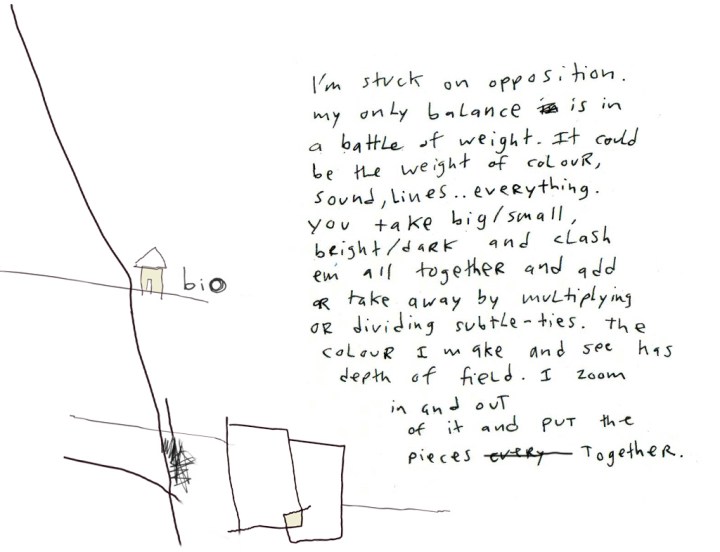 I'm stuck on opposition.
my only balance is in
a battle of weight. It could
be the weight of colour,
sound, lines.. everything.
you take big/small,
bright/dark and clash
em all together and add
or take away by multiplying
or dividing subtle-ties. the
colour I make and see has
depth of field. I zoom
in and out
of it and put the
pieces every together.
bio